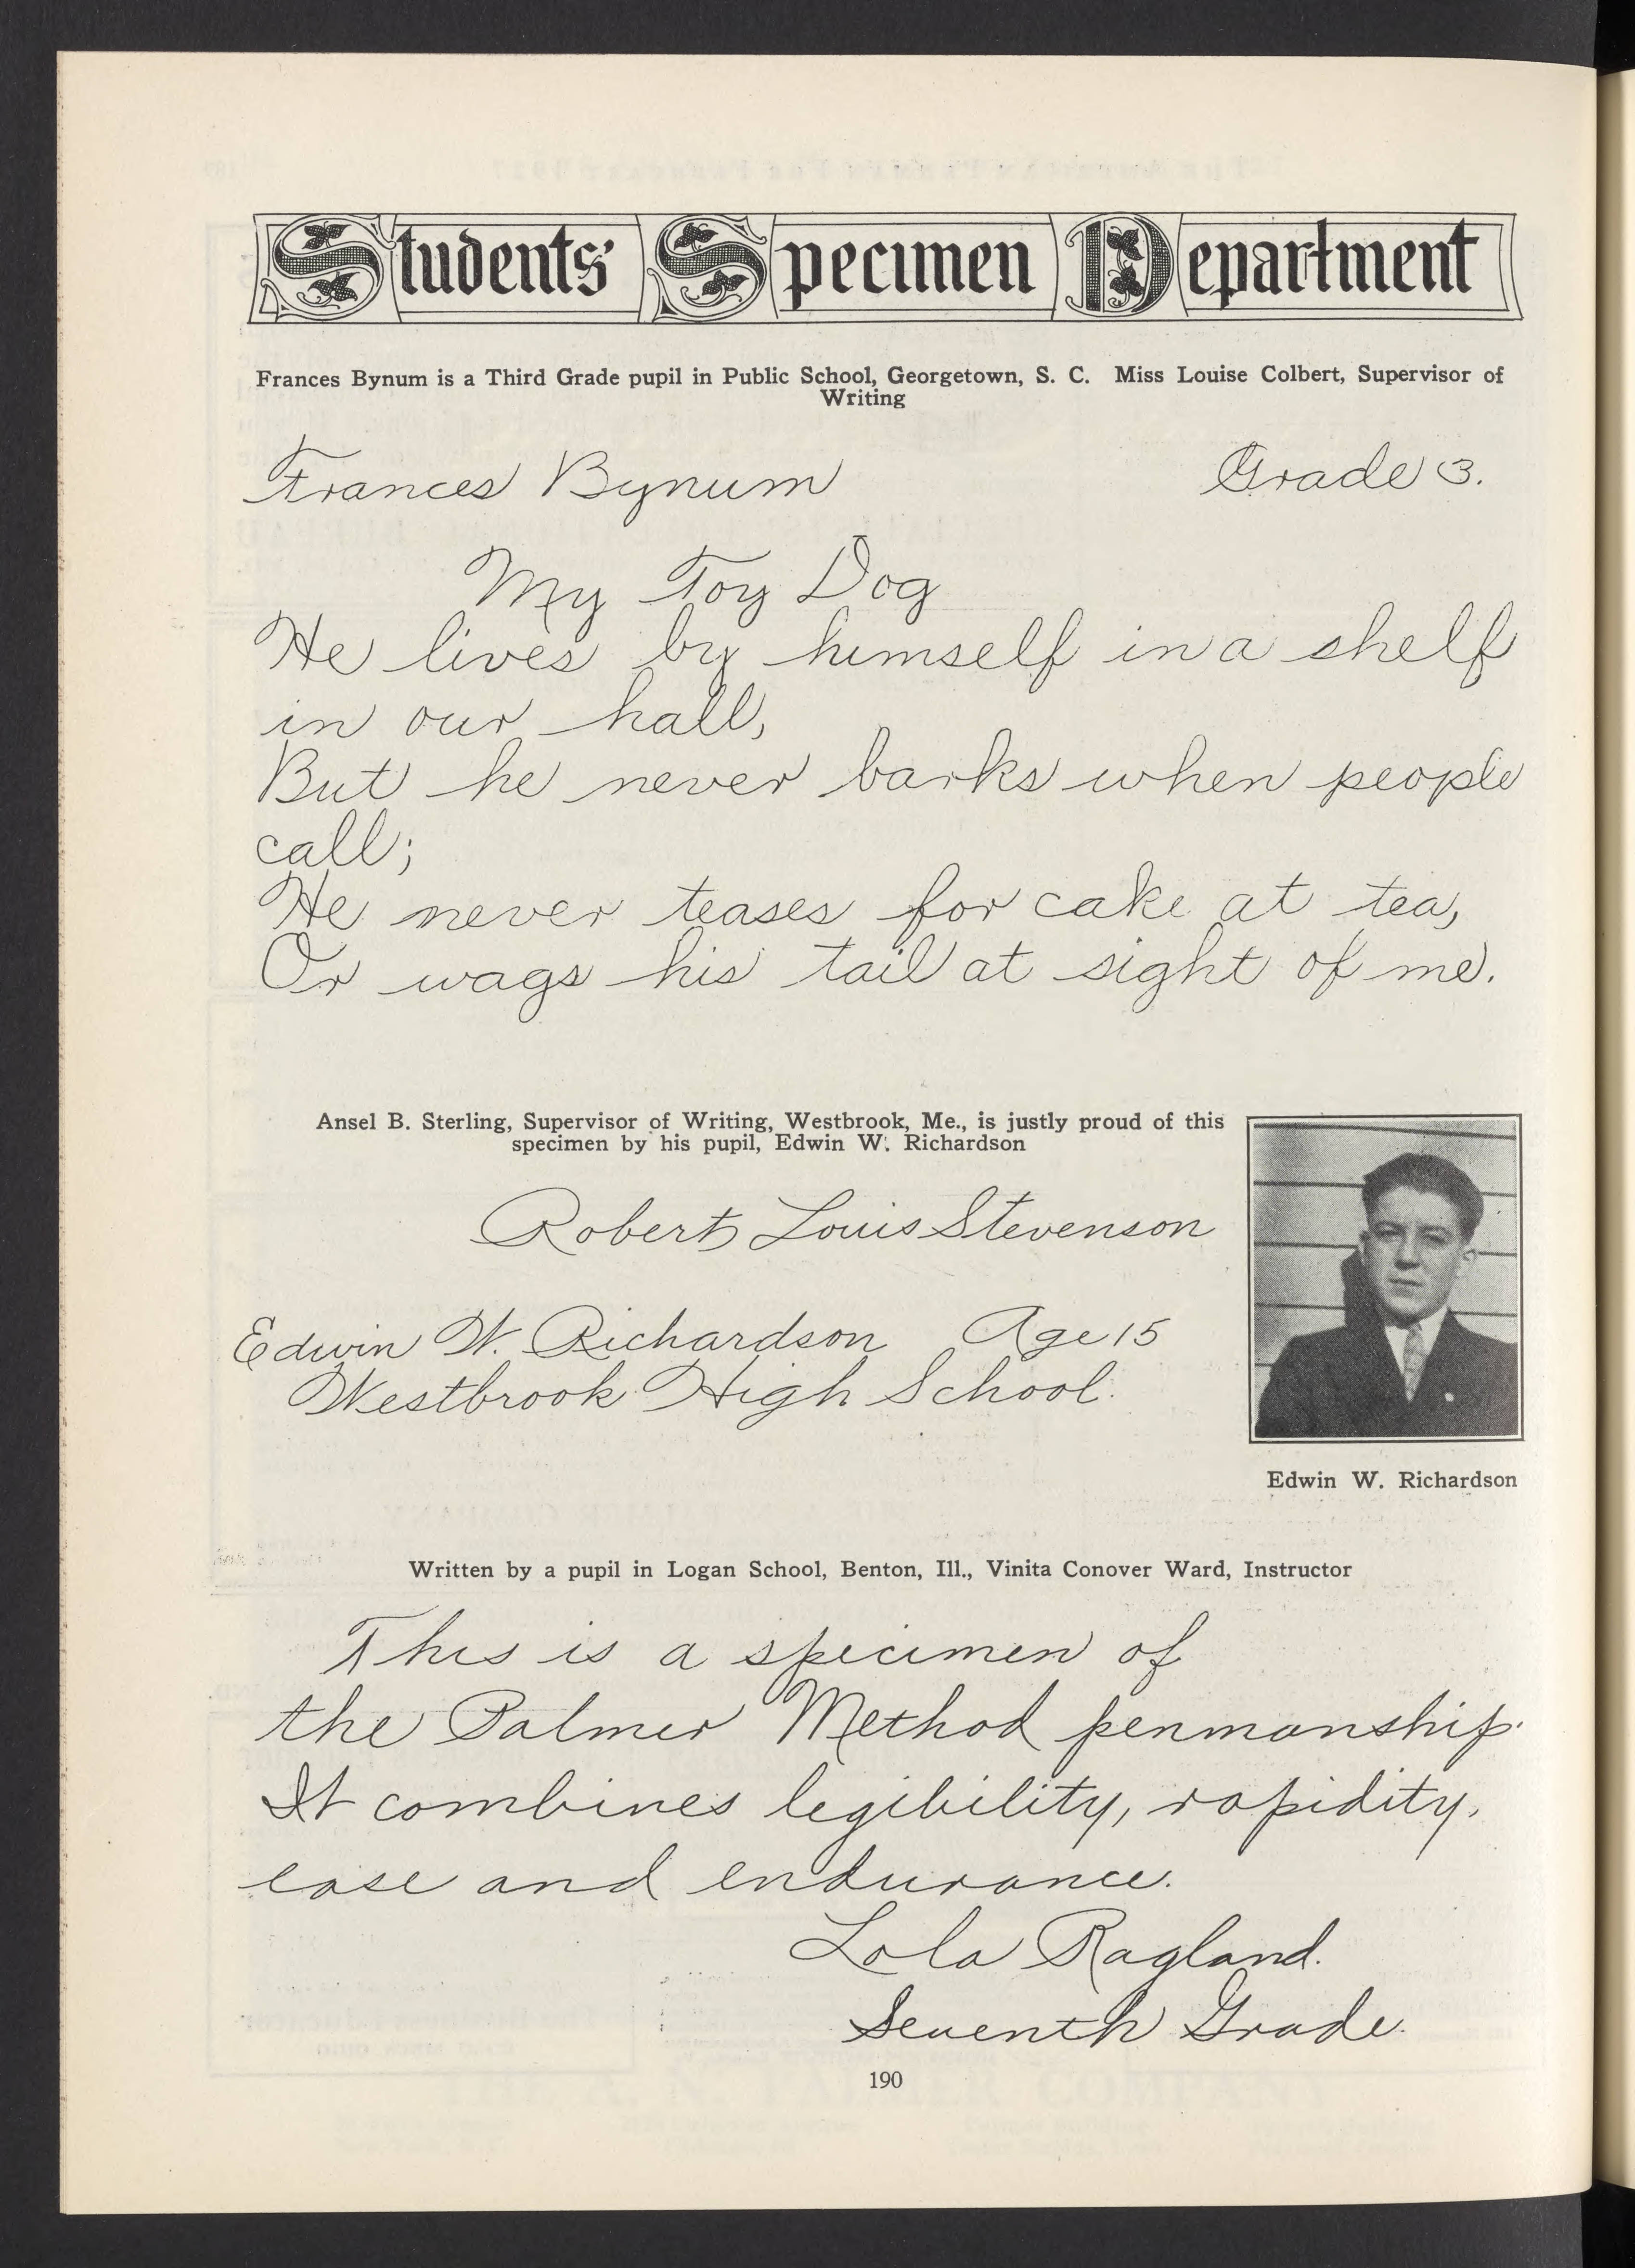 Students' Specimen Department
Frances Bynum is a Third Grade pupil in Public School, Georgetown, S. C. Miss Louise Colbert, Supervisor of
Writing
Frances Bynum Grade 3.
My Toy Dog
He lives by himself in a shelf
in our hall,
But he never barks when people
call;
He never teases for cake at tea,
Or wags his tail at sight of me.
Ansel B. Sterling, Supervisor of Writing, Westbrook, Me., is justly proud of this
specimen by his pupil, Edwin W. Richardson
Robert Louis Stevenson
Edwin W. Richardson Age 15
Westbrook High School.
Edwin W. Richardson
Written by a pupil in Logan School, Benton, Ill., Vinita Conover Ward, Instructor
This is a specimen of
the Palmer Method penmanship.
It combines legibility, rapidity,
ease and endurance.
Lola Ragland.
Seventh Grade.
190